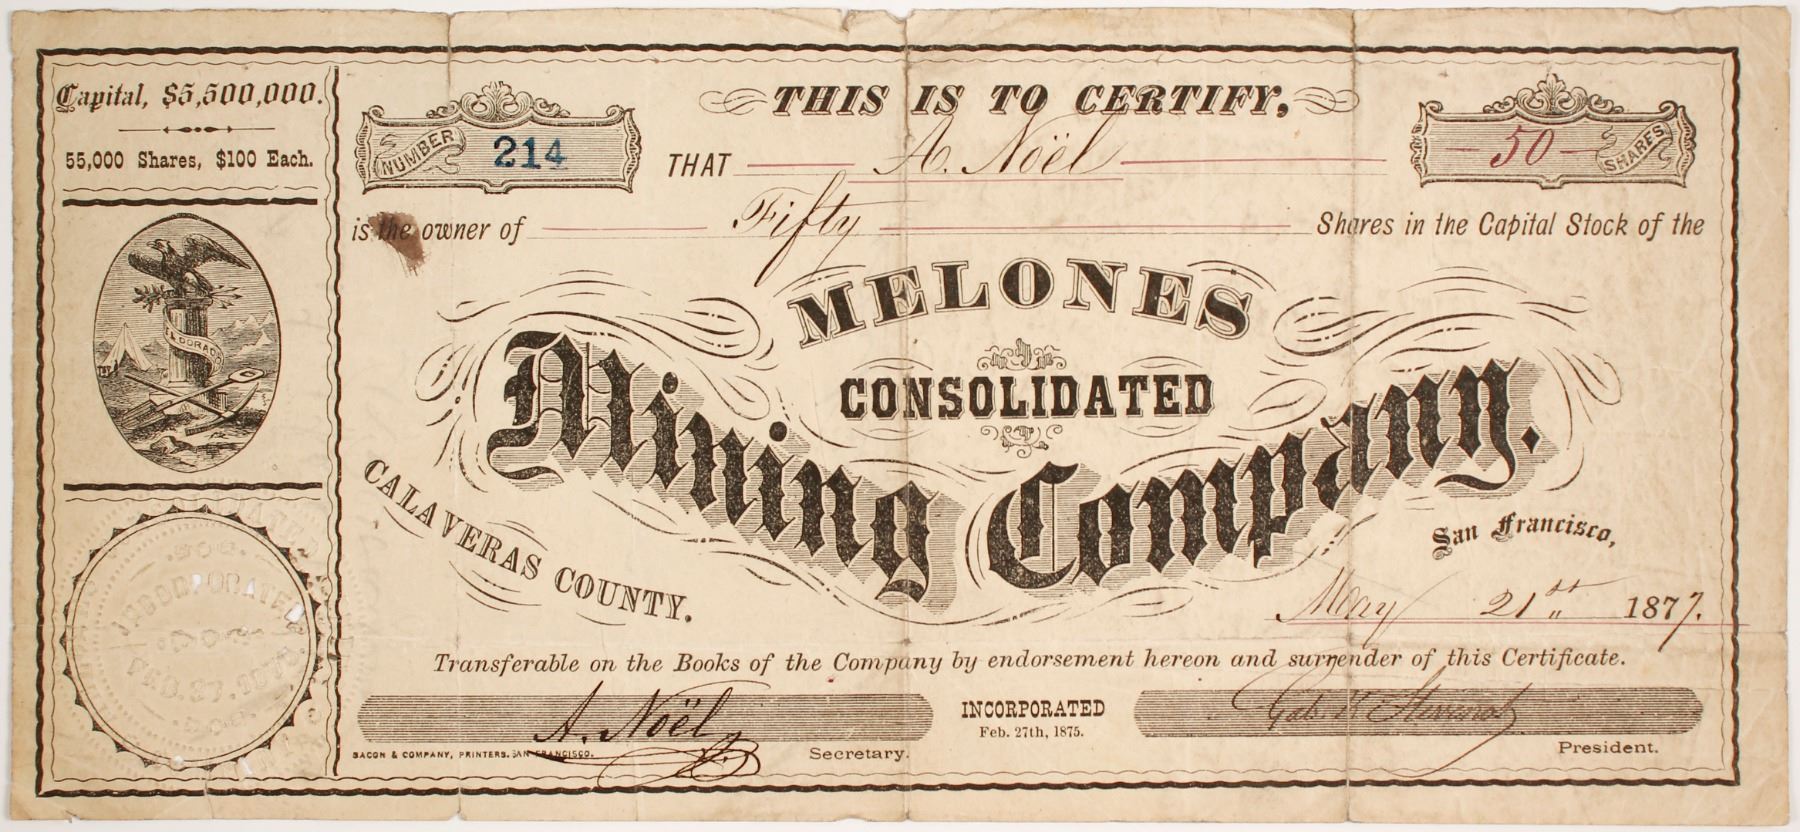 Capital, $5,500,000.
55,000 Shares, $100 Each.
ELDORADO
INCORPORATED
FEB. 27. 1875.
THIS IS TO CERTIFY,
NUMBER 214
THAT A. Noël
50 SHARES
is the owner of Fifty Shares in the Capital Stock of the
MELONES
CONSOLIDATED
Mining Company.
CALAVERAS COUNTY.
San Francisco,
May 21st 1877.
Transferable on the Books of the Company by endorsement hereon and surrender of this Certificate.
A. Noël
Secretary.
BACON & COMPANY, PRINTERS. SAN FRANCISCO.
INCORPORATED
Feb. 27th, 1875.
President.